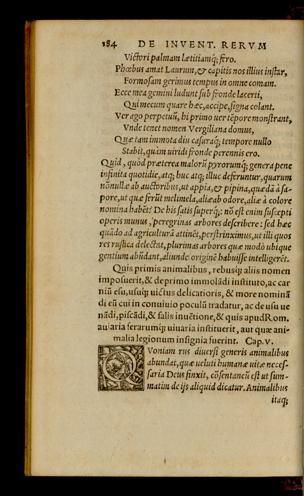 184 DE INVENT. RERVM
Victori palmam lætitiamq; fero.
Phœbus amat Laurum, & capitis nos illius instar,
Formosam gerimus tempus in omne comam.
Ecce mea gemini ludunt sub fronde lacerti,
Qui mecum quare hæc, accipe, signa colant.
Ver ago perpetuũ, hi primo uer tẽpore monstrant,
Vnde tenet nomen Vergiliana domus,
Quæ tam immota diu casuraq; tempore nullo
Stabit, quàm uiridi fronde perennis ero.
Quid, quòd præterea malorũ pyrorumq; genera pene
infinita quotidie, atq; huc atq; illuc deferuntur, quarum
nõnullæ ab auctoribus, ut appia, & pipina, quædã à sa-
pore, ut quæ serũt melimela, aliæ ab odore, aliæ à colore
nomina habẽt? De his satis superq;: nõ est enim suscepti
operis munus, peregrinas arbores describere: sed hæc
quãdo ad agriculturã attinẽt, perstrinximus, ut illi quos
res rustica delectat, plurimas arbores quæ modò ubique
gentium abũdant, aliunde originẽ habuisse intelligerẽt.
Quis primis animalibus, rebusq; aliis nomen
imposuerit, & de primo immolãdi instituto, ac car
niũ esu, usuq; uictus delicatioris, & more nominã
di eũ cui in conuiuio poculũ tradatur, ac de usu ue
nãdi, piscãdi, & salis inuẽtione, & quis apud Rom.
auiaria ferarumq; uiuaria instituerit, aut quæ ani-
malia legionum insignia fuerint. Cap. v.
QVoniam res diuersi generis animalibus
abundat, quæ ueluti humanæ uitæ neces-
saria Deus finxit, cõsentancũ est ut sum-
matim de ijs aliquid dicatur. Animalibus
itaq;